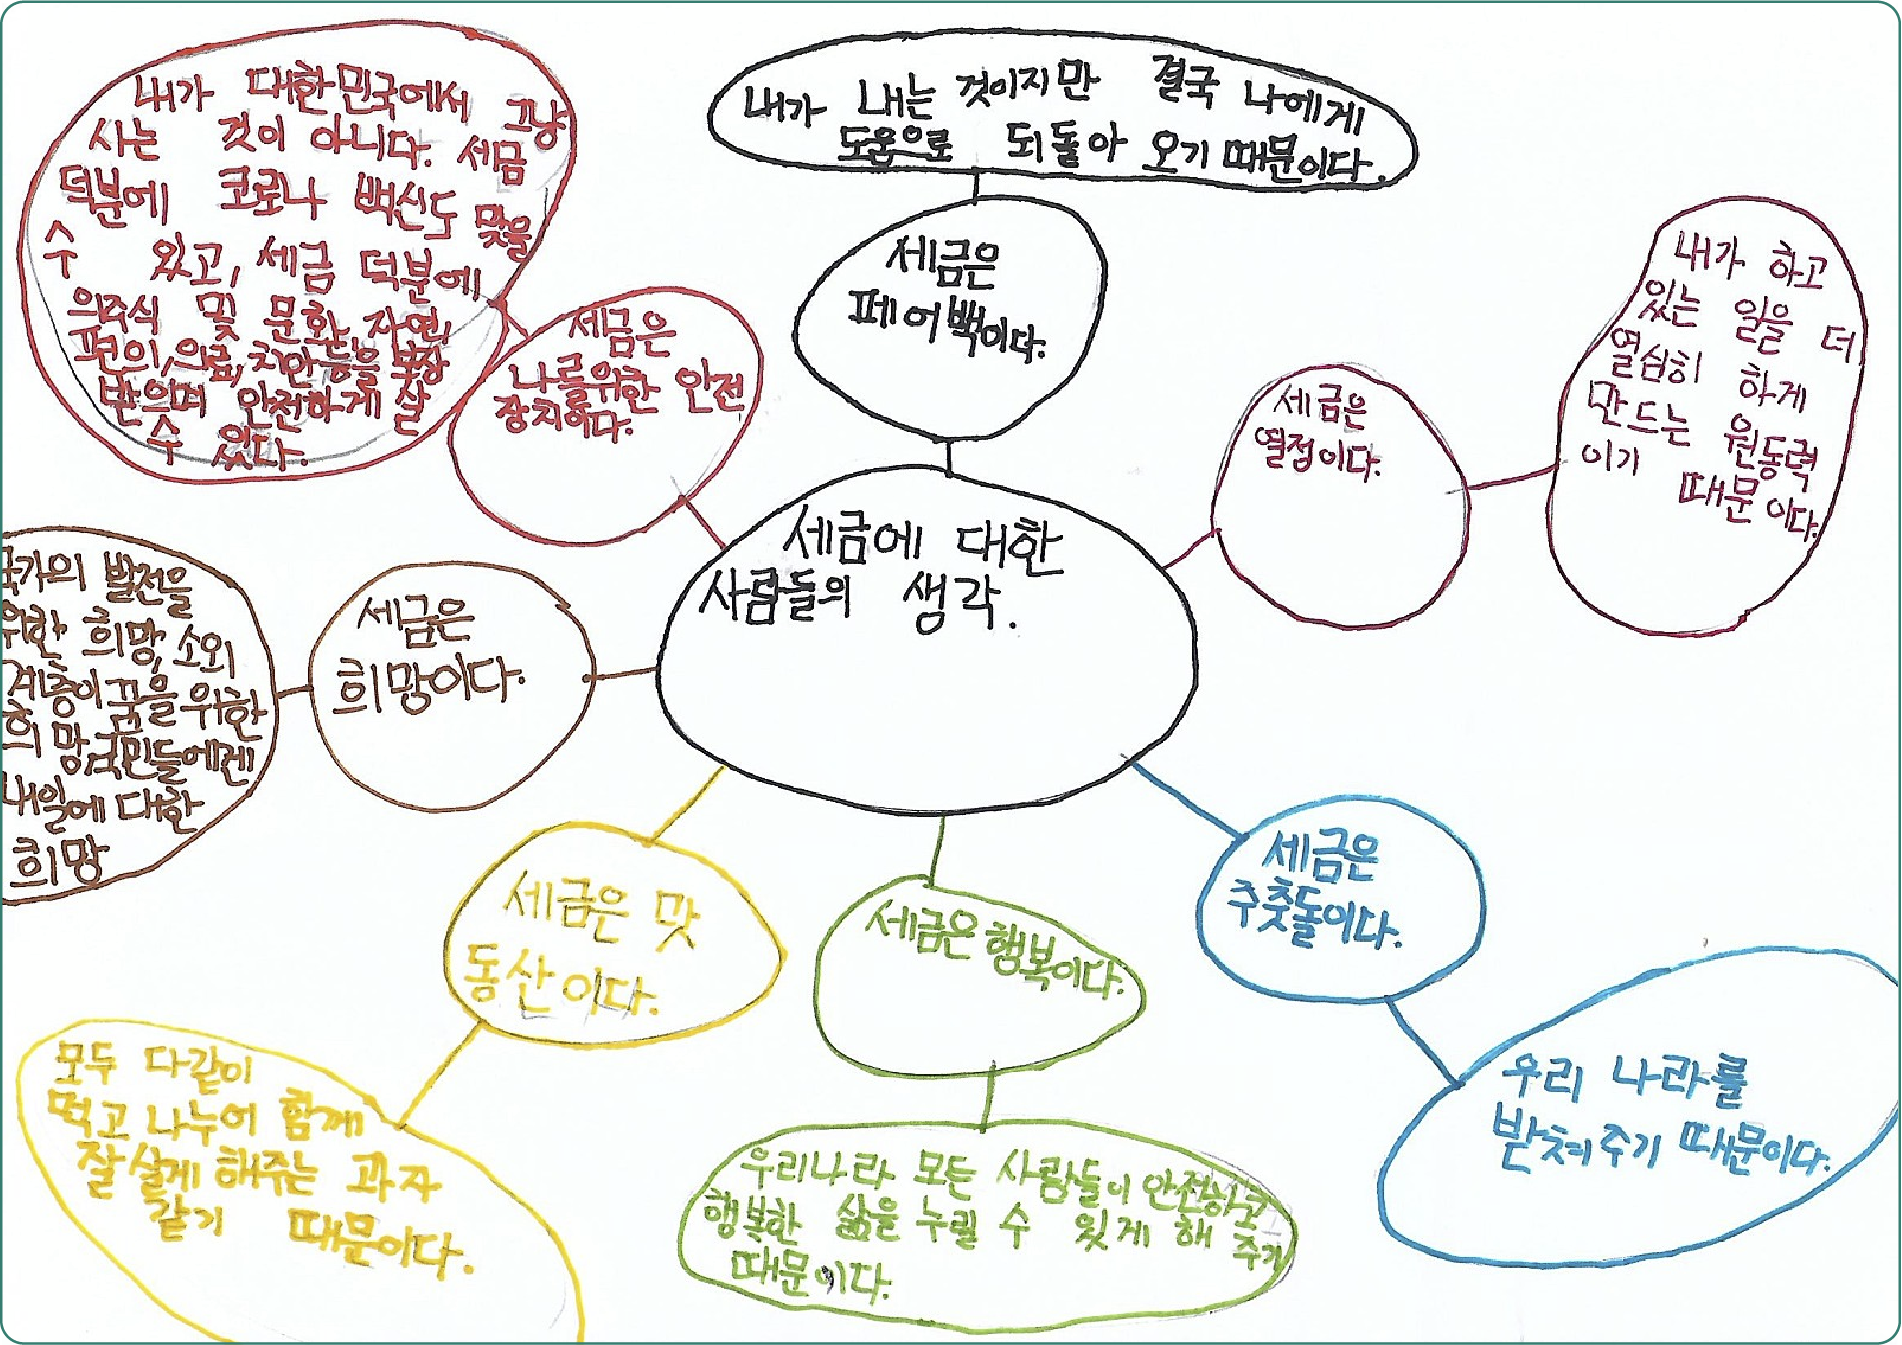 세금에 대한
사람들의 생각.
세금은
페어백이다.
내가 내는 것이지만 결국 나에게
도움으로 되돌아 오기 때문이다.
세금은
열정이다.
내가 하고
있는 일을 더
열심히 하게
만드는 원동력
이기 때문이다.
세금은
주춧돌이다.
우리 나라를
받쳐주기 때문이다.
세금은 행복이다.
우리나라 모든 사람들이 안전하고
행복한 삶을 누릴 수 있게 해 주기
때문이다.
세금은 맛
동산이다.
모두 다같이
먹고 나누어 함께
잘살게 해주는 과자
같기 때문이다.
세금은
희망이다.
국가의 발전을
위한 희망, 소외
계층이 꿈을 위한
희망, 국민들에겐
내일에 대한
희망
세금은
나를위한 안전
장치이다.
내가 대한민국에서 그냥
사는 것이 아니다. 세금
덕분에 코로나 백신도 맞을
수 있고, 세금 덕분에
의주식 및 문화, 자연,
편의, 의료, 치안등을 보장
받으며 안전하게 살
수 있다.